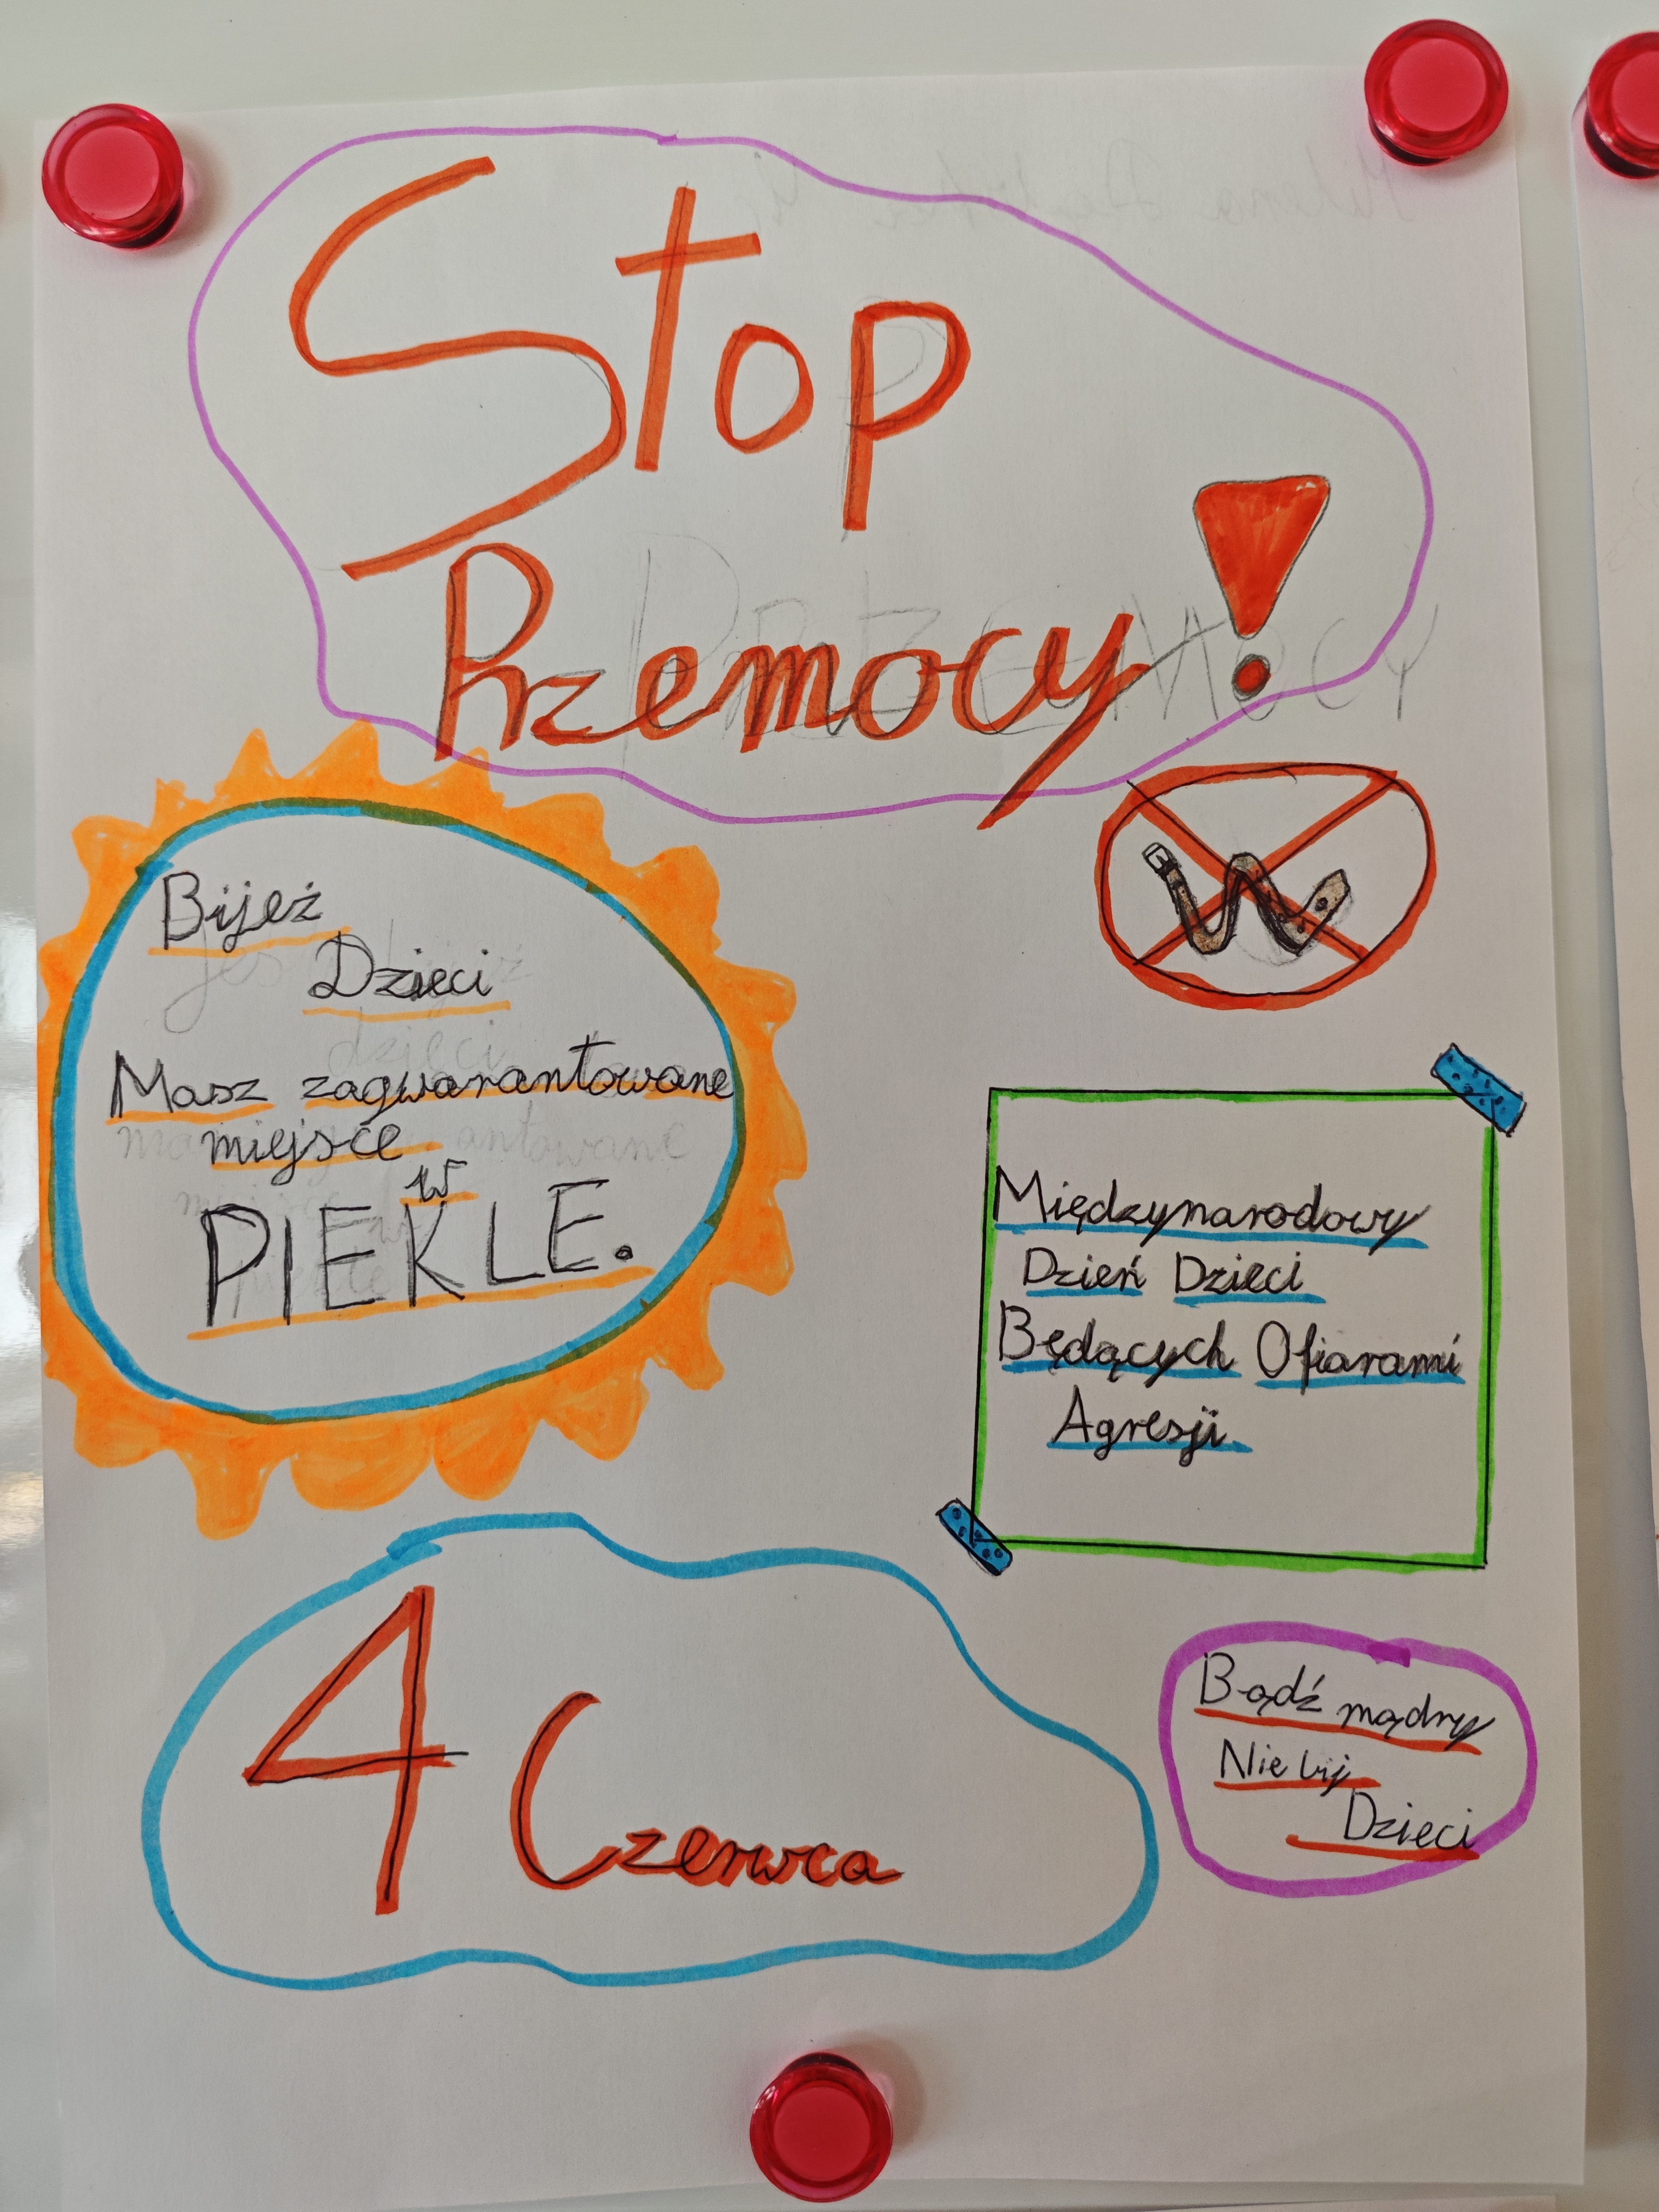 Stop
Przemocy!
Bijeż
Dzieci
Masz zagwarantowane
miejsce
w
PIEKLE.
Międzynarodowy
Dzień Dzieci
Będących Ofiarami
Agresji
4 Czerwca
Bądź mądry
Nie bij
Dzieci